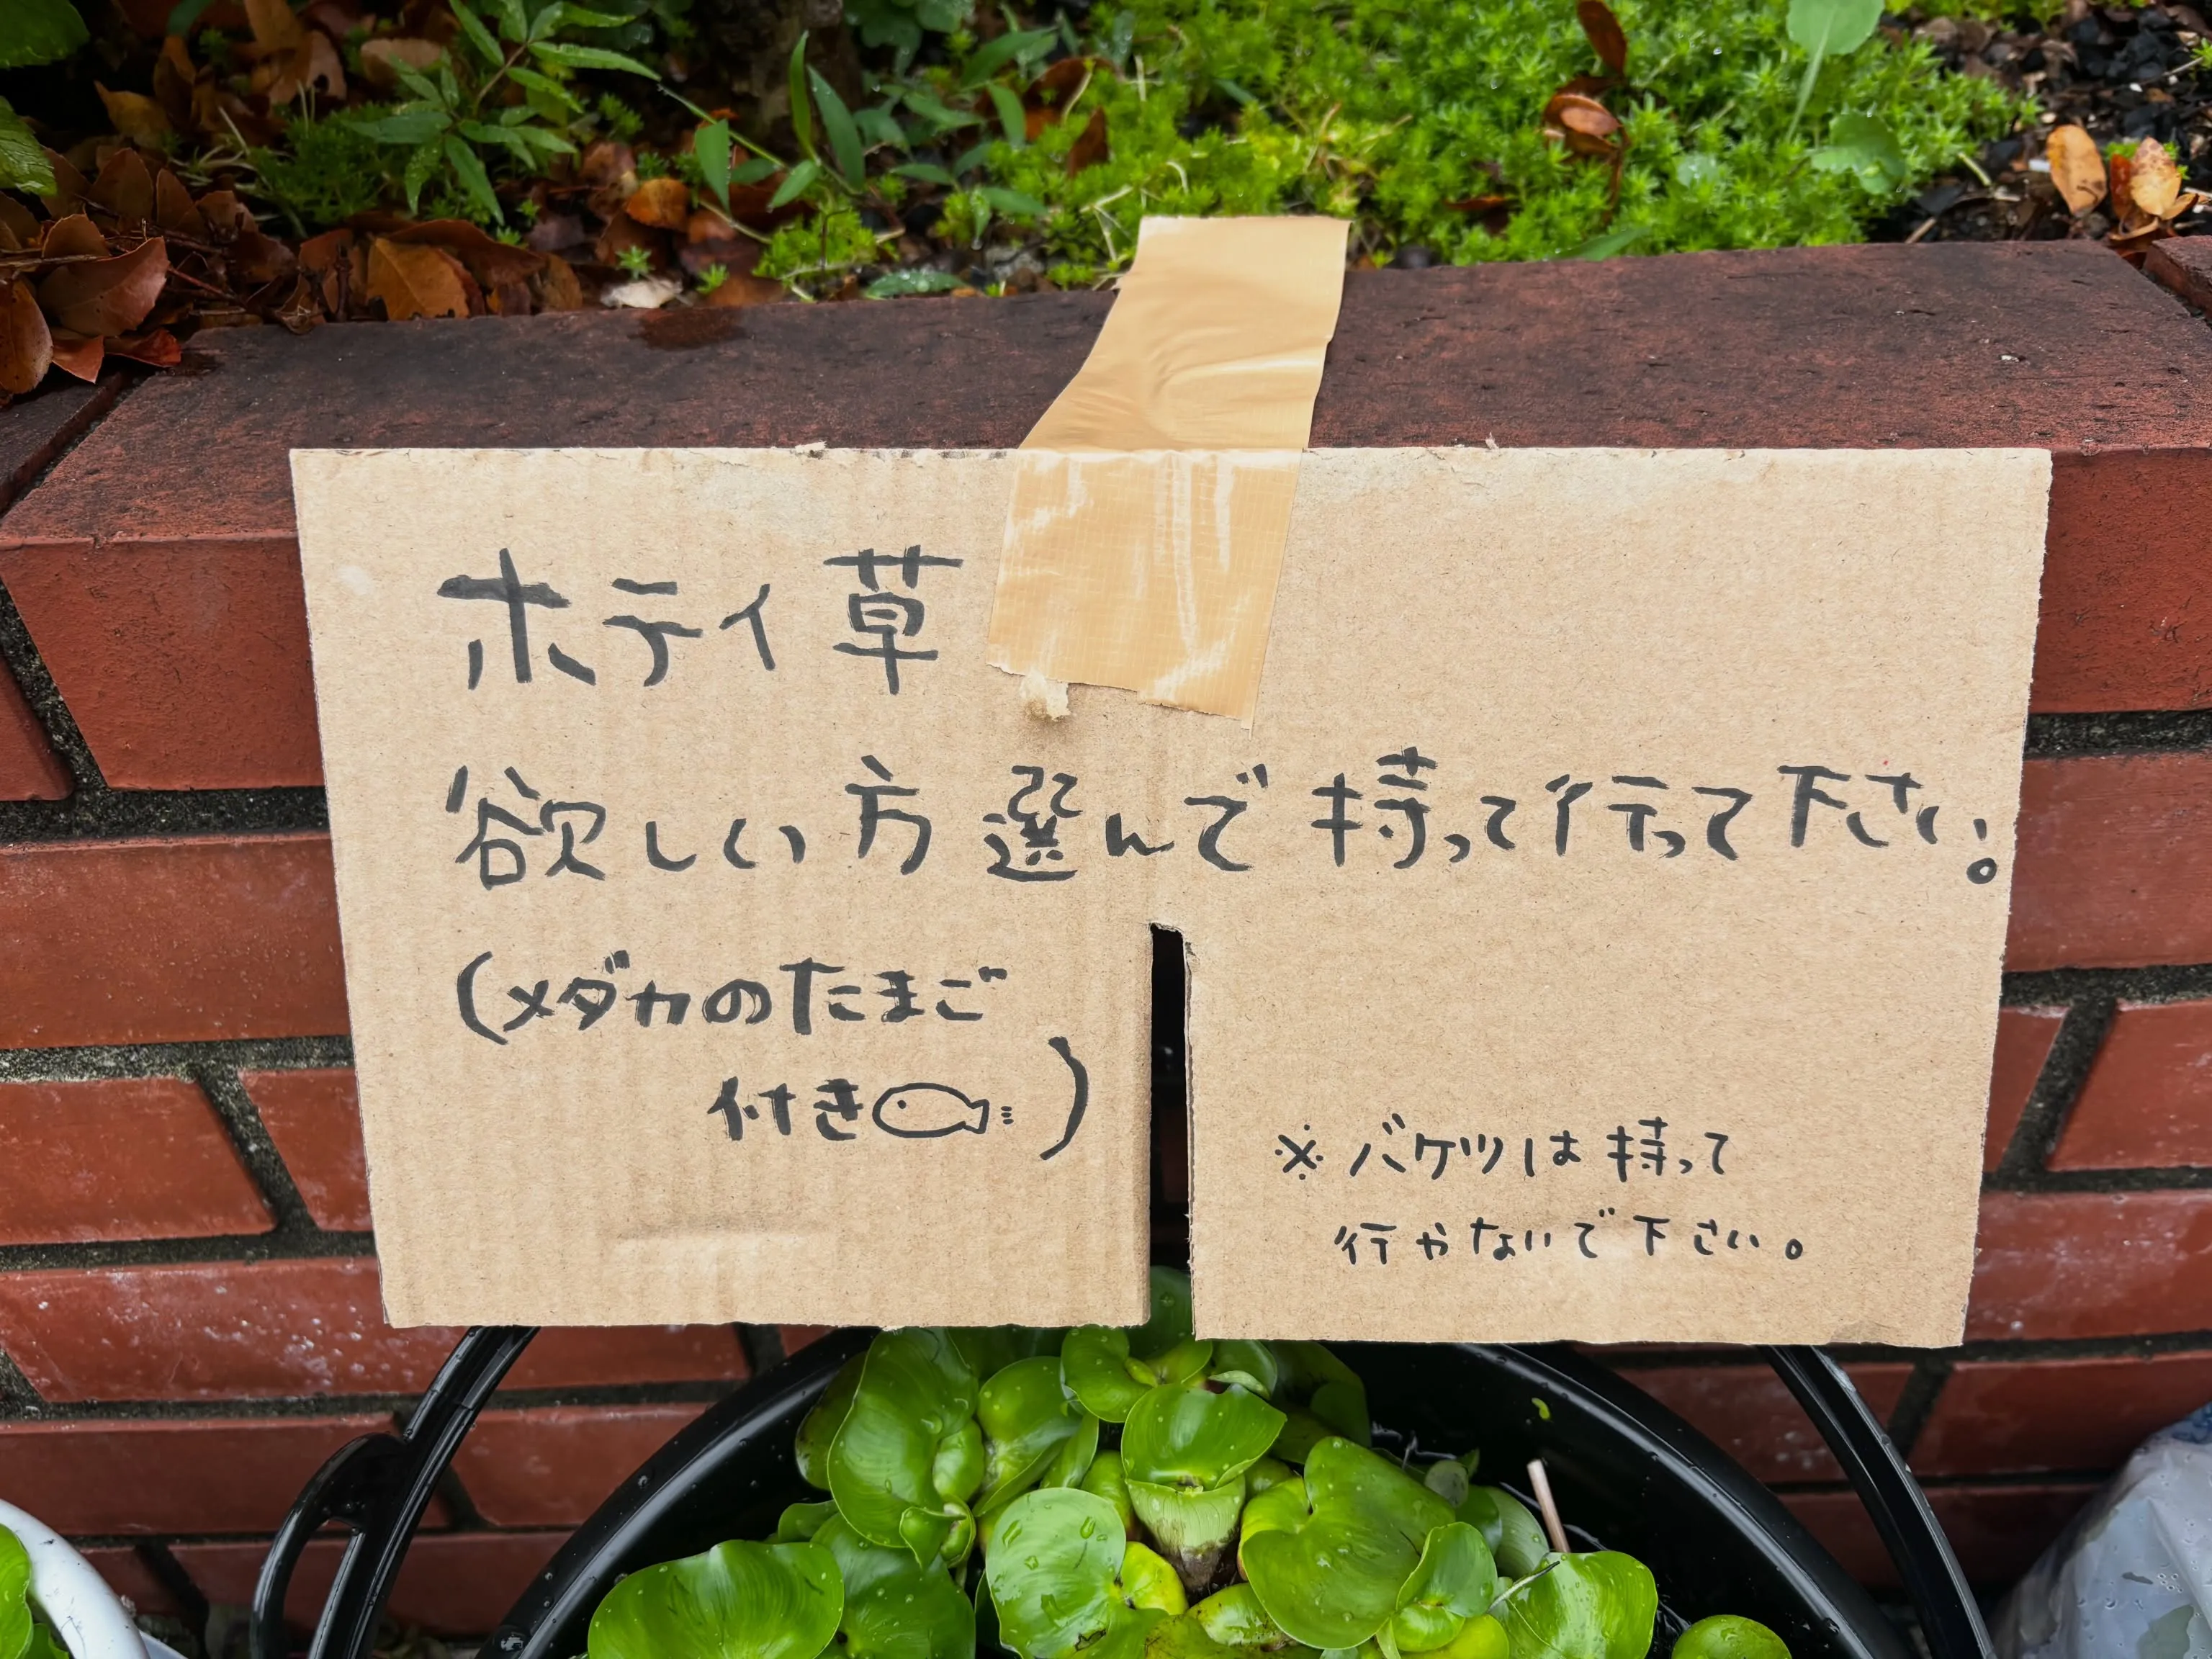 ホテイ草
欲しい方選んで持って行って下さい。
(メダカのたまご
付き)
※バケツは持って
行かないで下さい。